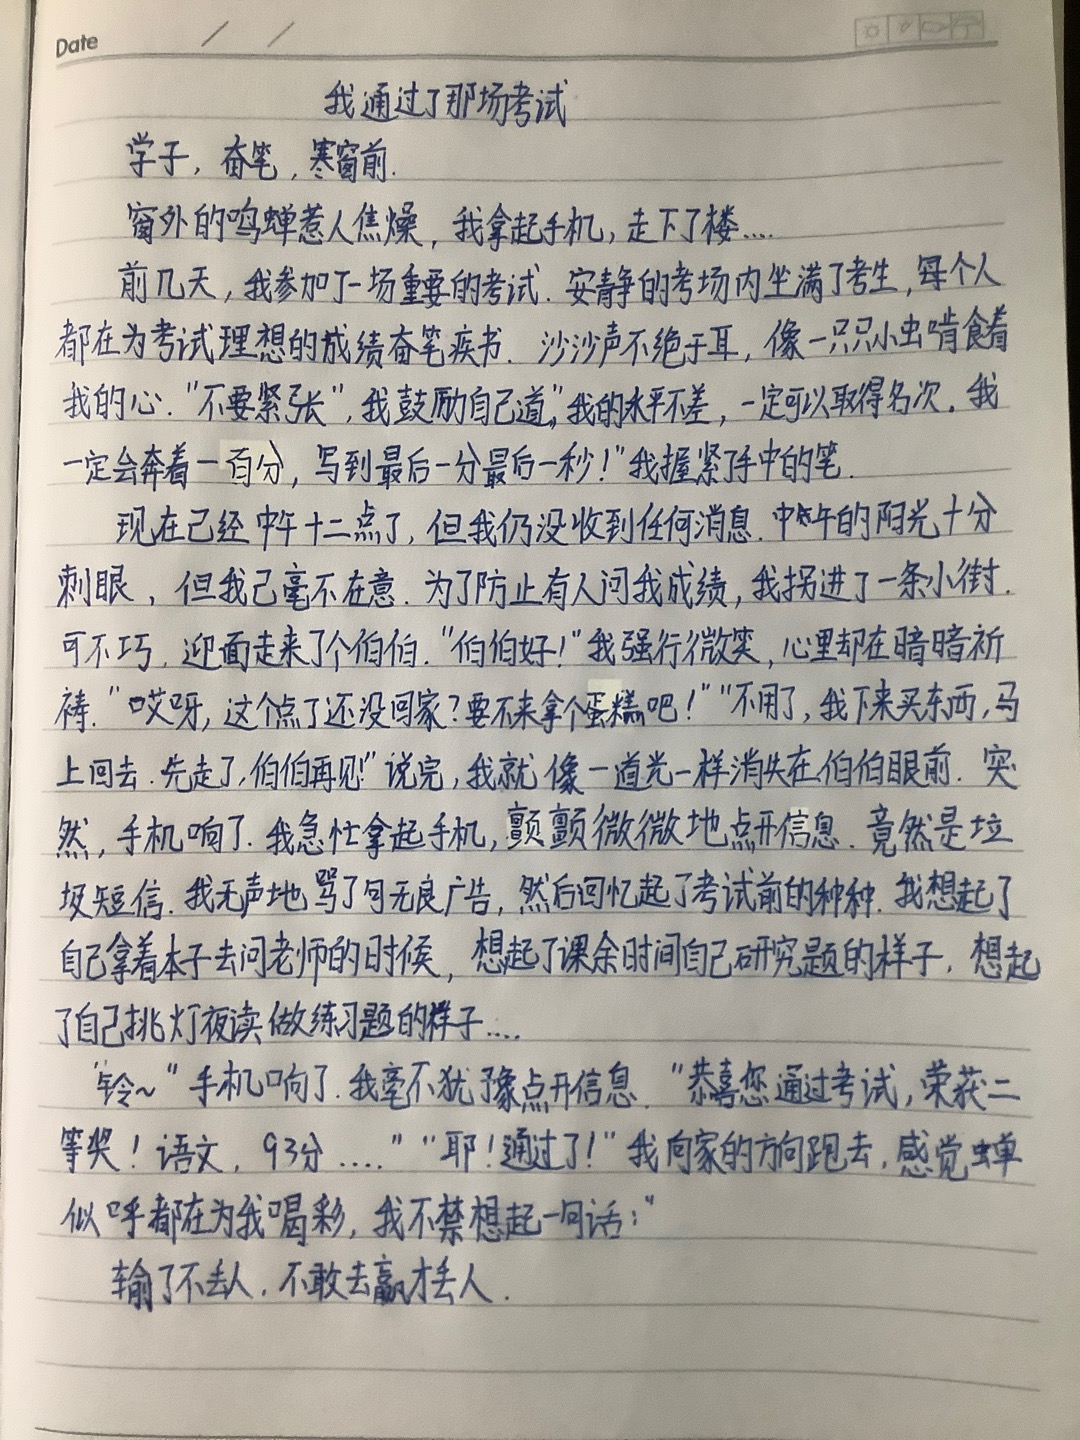 Date / /
我通过了那场考试
学子，奋笔，寒窗前.
窗外的鸣蝉惹人焦燥，我拿起手机，走下了楼....
前几天，我参加了一场重要的考试.安静的考场内坐满了考生，每个人
都在为考试理想的成绩奋笔疾书.沙沙声不绝于耳，像一只只小虫啃食着
我的心."不要紧张"，我鼓励自己道，"我的水平不差，一定可以取得名次.我
一定会奔着一百分，写到最后一分最后一秒！"我握紧了手中的笔.
现在已经中午十二点了，但我仍没收到任何消息.中午的阳光十分
刺眼，但我已毫不在意.为了防止有人问我成绩，我拐进了一条小街.
可不巧.迎面走来了个伯伯."伯伯好！"我强行微笑，心里却在暗暗祈
祷."哎呀，这个点了还没回家？要不来拿个蛋糕吧！""不用了，我下来买东西，马
上回去.先走了，伯伯再见！"说完，我就像一道光一样消失在伯伯眼前.突
然，手机响了.我急忙拿起手机，颤颤微微地点开信息.竟然是垃
圾短信.我无声地骂了句无良广告，然后回忆起了考试前的种种.我想起了
自己拿着本子去问老师的时候，想起了课余时间自己研究题的样子.想起
了自己挑灯夜读做练习题的样子....
"铃~"手机响了.我毫不犹豫点开信息."恭喜您通过考试，荣获二
等奖！语文，93分....""耶！通过了！"我向家的方向跑去，感觉蝉
似呼都在为我喝彩，我不禁想起一句话："
输了不丢人.不敢去赢才丢人.